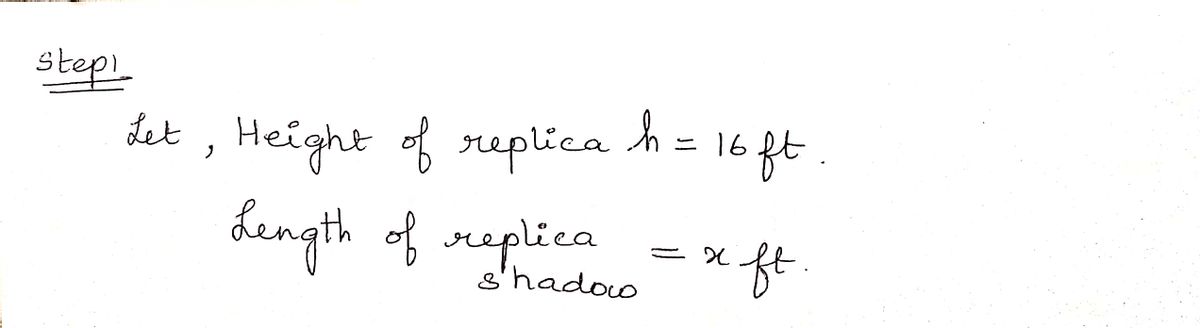 Step1
Let, Height of replica h = 16 ft.
Length of replica shadow = x ft.